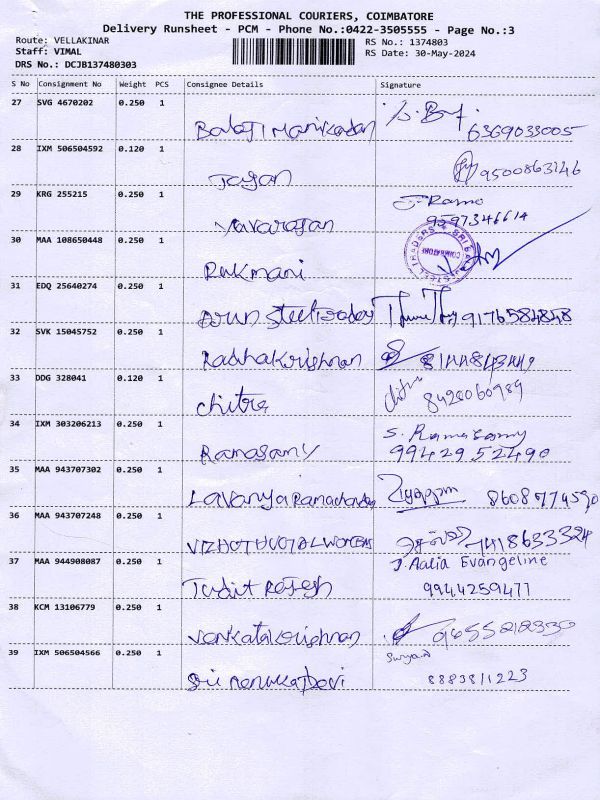 THE PROFESSIONAL COURIERS, COIMBATORE
Delivery Runsheet - PCM - Phone No.:0422-3505555 - Page No.:3
Route: VELLAKINAR
RS No.: 1374803
Staff: VIMAL
RS Date: 30-May-2024
DRS No.: DCJB137480303
S No Consignment No Weight PCS Consignee Details Signature
27 SVG 4670202 0.250 1
Balaji Manikandan 6369033005
28 IXM 506504592 0.120 1
Jagan 9500863146
29 KRG 255215 0.250 1
Yavarajan 9597346614
30 MAA 108650448 0.250 1
Rukmani
31 EDQ 25640274 0.250 1
Arun 9176584848
32 SVK 15045752 0.250 1
Radhakrishnan 8144843449
33 DDG 328041 0.120 1
chitra 8428060989
34 IXM 303206213 0.250 1
Ramasamy S. Ramasamy
9942952490
35 MAA 943707302 0.250 1
Lavanya Ramachandra 8608774590
36 MAA 943707248 0.250 1
7418633324
37 MAA 944908087 0.250 1
J. Aalia Evangeline
9944259471
38 KCM 13106779 0.250 1
Venkatakrishnan 9655212330
39 IXM 506504566 0.250 1
Surya
Sri 8883811223